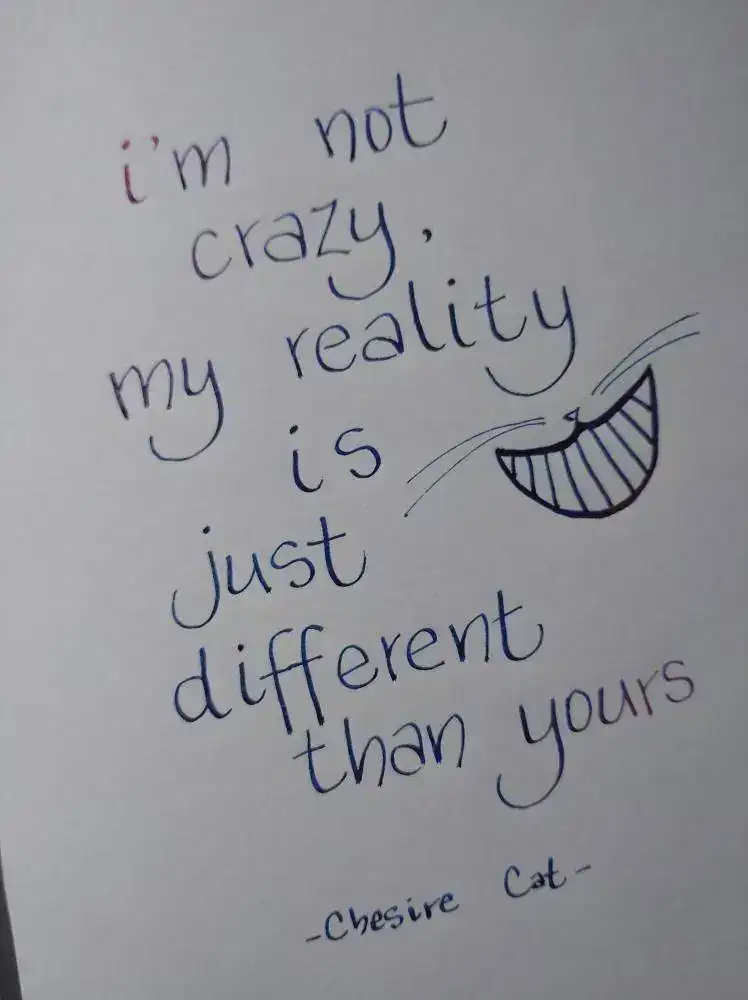 i'm not
crazy,
my reality
is
just
different
than yours
-Chesire Cat-